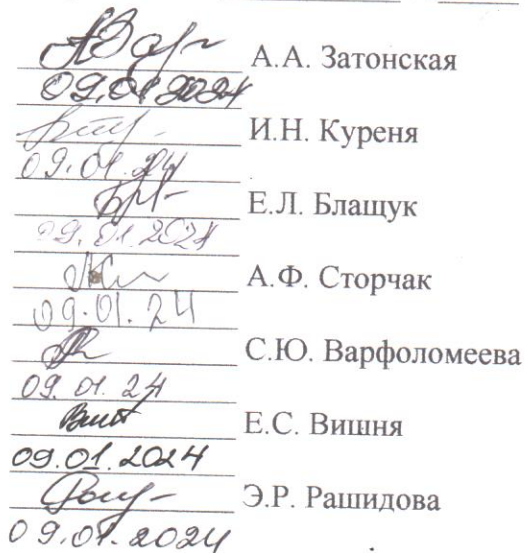 А.А. Затонская
09.01.2024
И.Н. Куреня
09.01.24
Е.Л. Блащук
09.01.2024
А.Ф. Сторчак
09.01.24
С.Ю. Варфоломеева
09.01.24
Е.С. Вишня
09.01.2024
Э.Р. Рашидова
09.01.2024